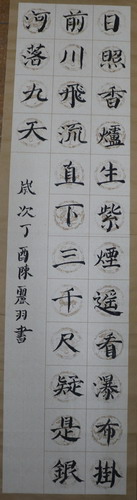 日照香爐生紫煙遥看瀑布掛
前川飛流直下三千尺疑是銀
河落九天
歲次丁酉陳麗羽書